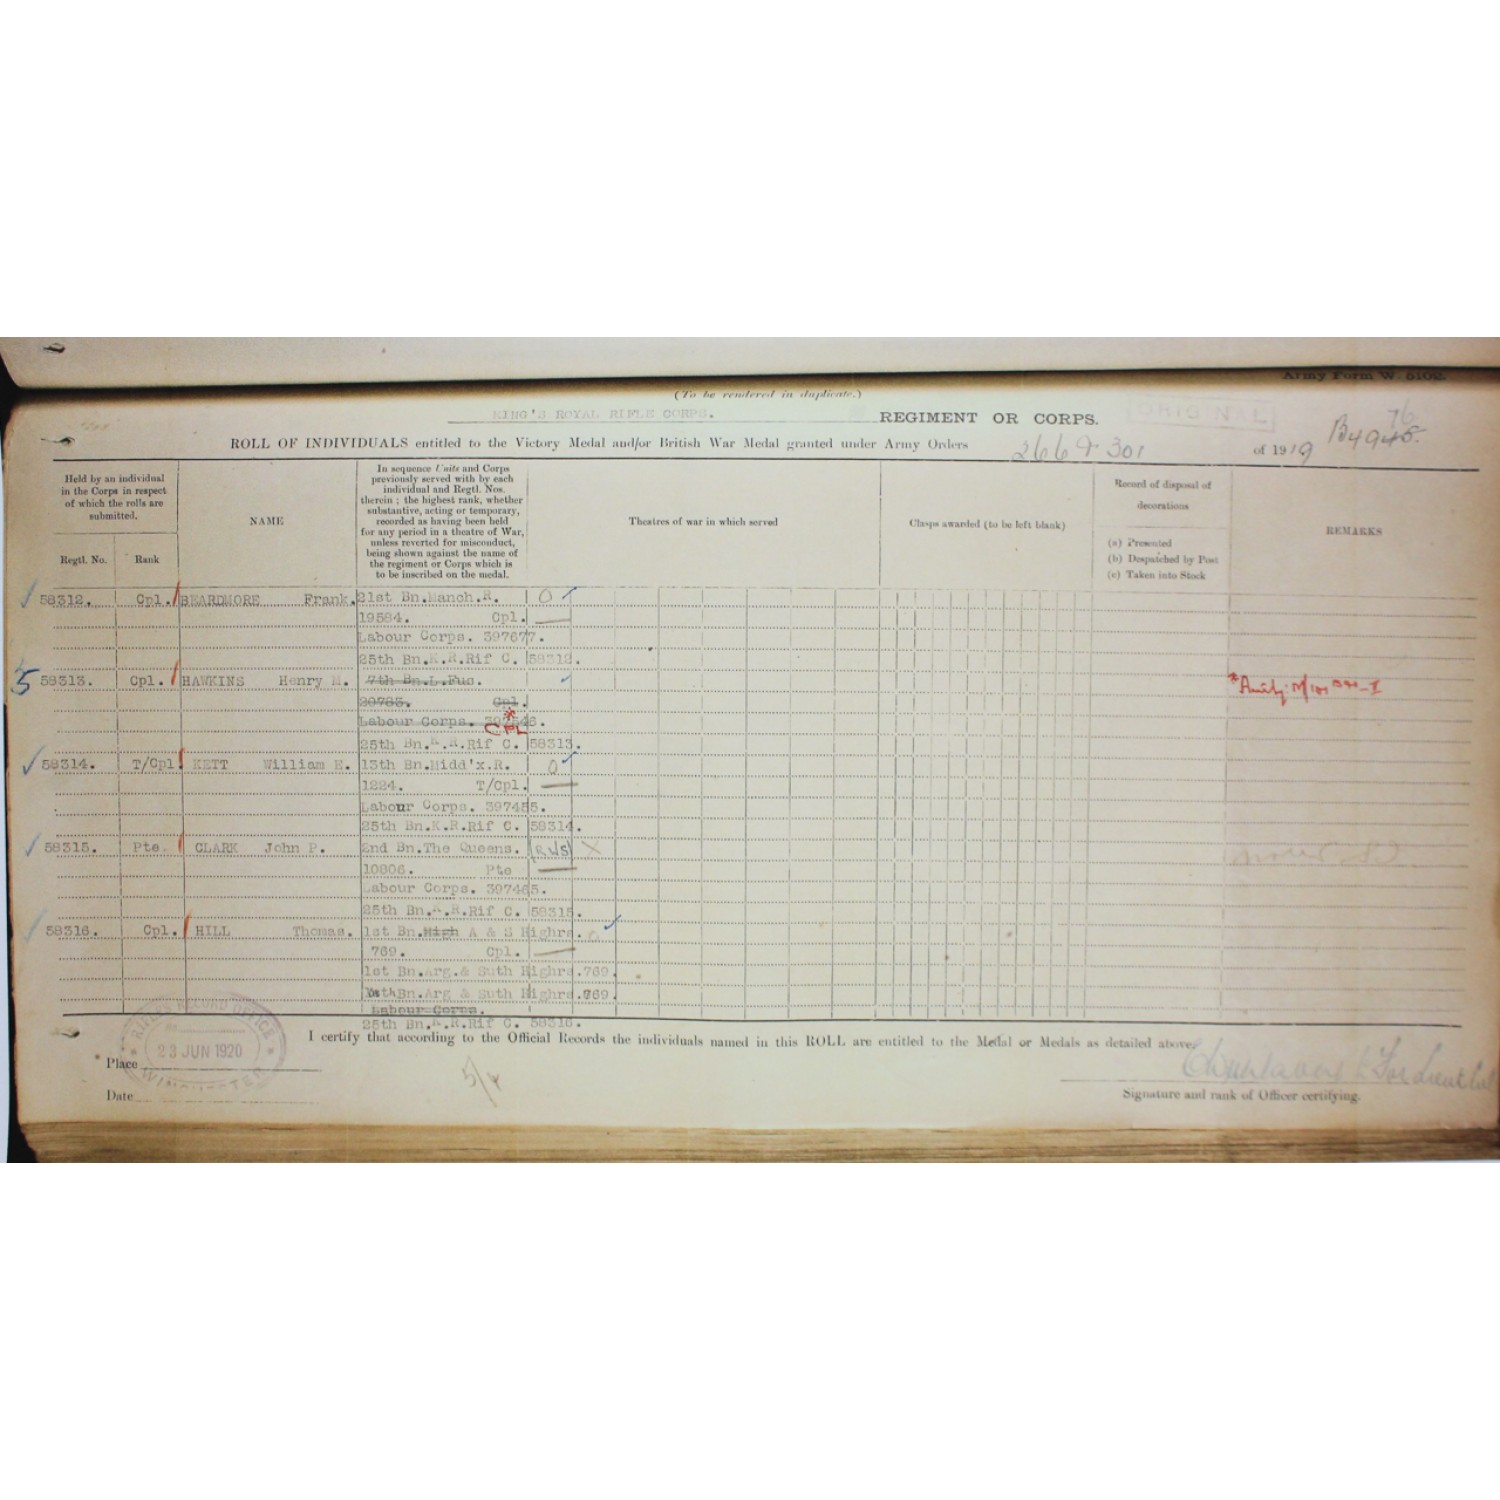 Army Form W. 5102.
(To be rendered in duplicate.)
KING'S ROYAL RIFLE CORPS. REGIMENT OR CORPS.
ROLL OF INDIVIDUALS entitled to the Victory Medal and/or British War Medal granted under Army Orders 266 & 301 of 1919
Held by an individual
in the Corps in respect
of which the rolls are
submitted.
Regtl. No. Rank
NAME
In sequence Units and Corps
previously served with by each
individual and Regtl. Nos.
therein ; the highest rank, whether
substantive, acting or temporary,
recorded as having been held
for any period in a theatre of War,
unless reverted for misconduct,
being shown against the name of
the regiment or Corps which is
to be inscribed on the medal.
Theatres of war in which served
Clasps awarded (to be left blank)
Record of disposal of
decorations
(a) Presented
(b) Despatched by Post
(c) Taken into Stock
REMARKS
58312. Cpl. BEARDMORE Frank. 21st Bn.Manch.R.
19584. Cpl.
Labour Corps. 397677.
25th Bn.K.R.Rif C. 58312.
5 58313. Cpl. HAWKINS Henry M. 7th Bn.L.Fus.
20783. Cpl.
Labour Corps.
CPL
25th Bn.K.R.Rif C. 58313.
58314. T/Cpl KETT William E. 13th Bn.Midd'x.R.
1224. T/Cpl.
Labour Corps. 397455.
25th Bn.K.R.Rif C. 58314.
58315. Pte. CLARK John P. 2nd Bn.The Queens.
10806. Pte
Labour Corps. 397465.
25th Bn.K.R.Rif C. 58315.
58316. Cpl. HILL Thomas. 1st Bn.High A & S Highrs.
769. Cpl.
1st Bn.Arg.& Suth Highrs.769.
Bn.Arg & Suth Highrs.769.
Labour Corps.
25th Bn.K.R.Rif C. 58316.
I certify that according to the Official Records the individuals named in this ROLL are entitled to the Medal or Medals as detailed above.
RIFLES RECORD OFFICE
23 JUN 1920
WINCHESTER
Place
Date
Signature and rank of Officer certifying.